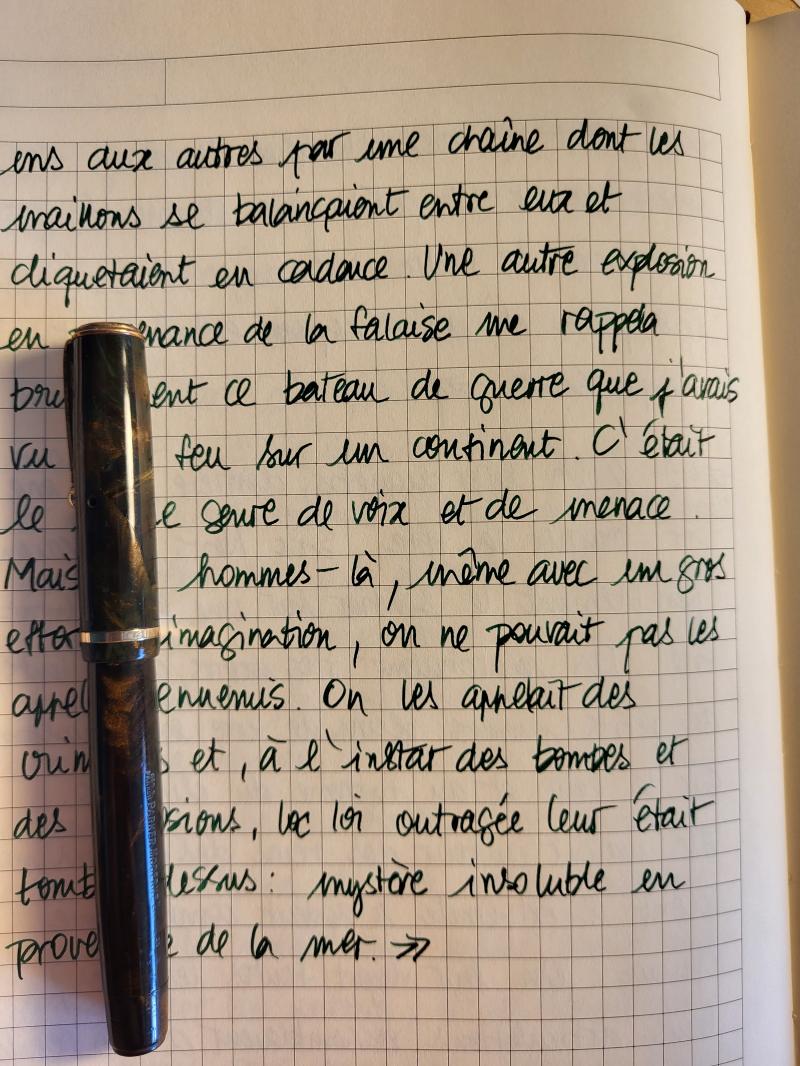 uns aux autres par une chaîne dont les
maillons se balançaient entre eux et
cliquetaient en cadence. Une autre explosion
en nance de la falaise me rappela
bru ent ce bateau de guerre que j'avais
vu feu sur un continent. C'était
le e genre de voix et de menace.
Mais hommes-là, même avec un gros
effor imagination, on ne pouvait pas les
appel ennemis. On les appelait des
crim s et, à l'instar des bombes et
des sions, la loi outragée leur était
tomb dessus : mystère insoluble en
prove e de la mer. »